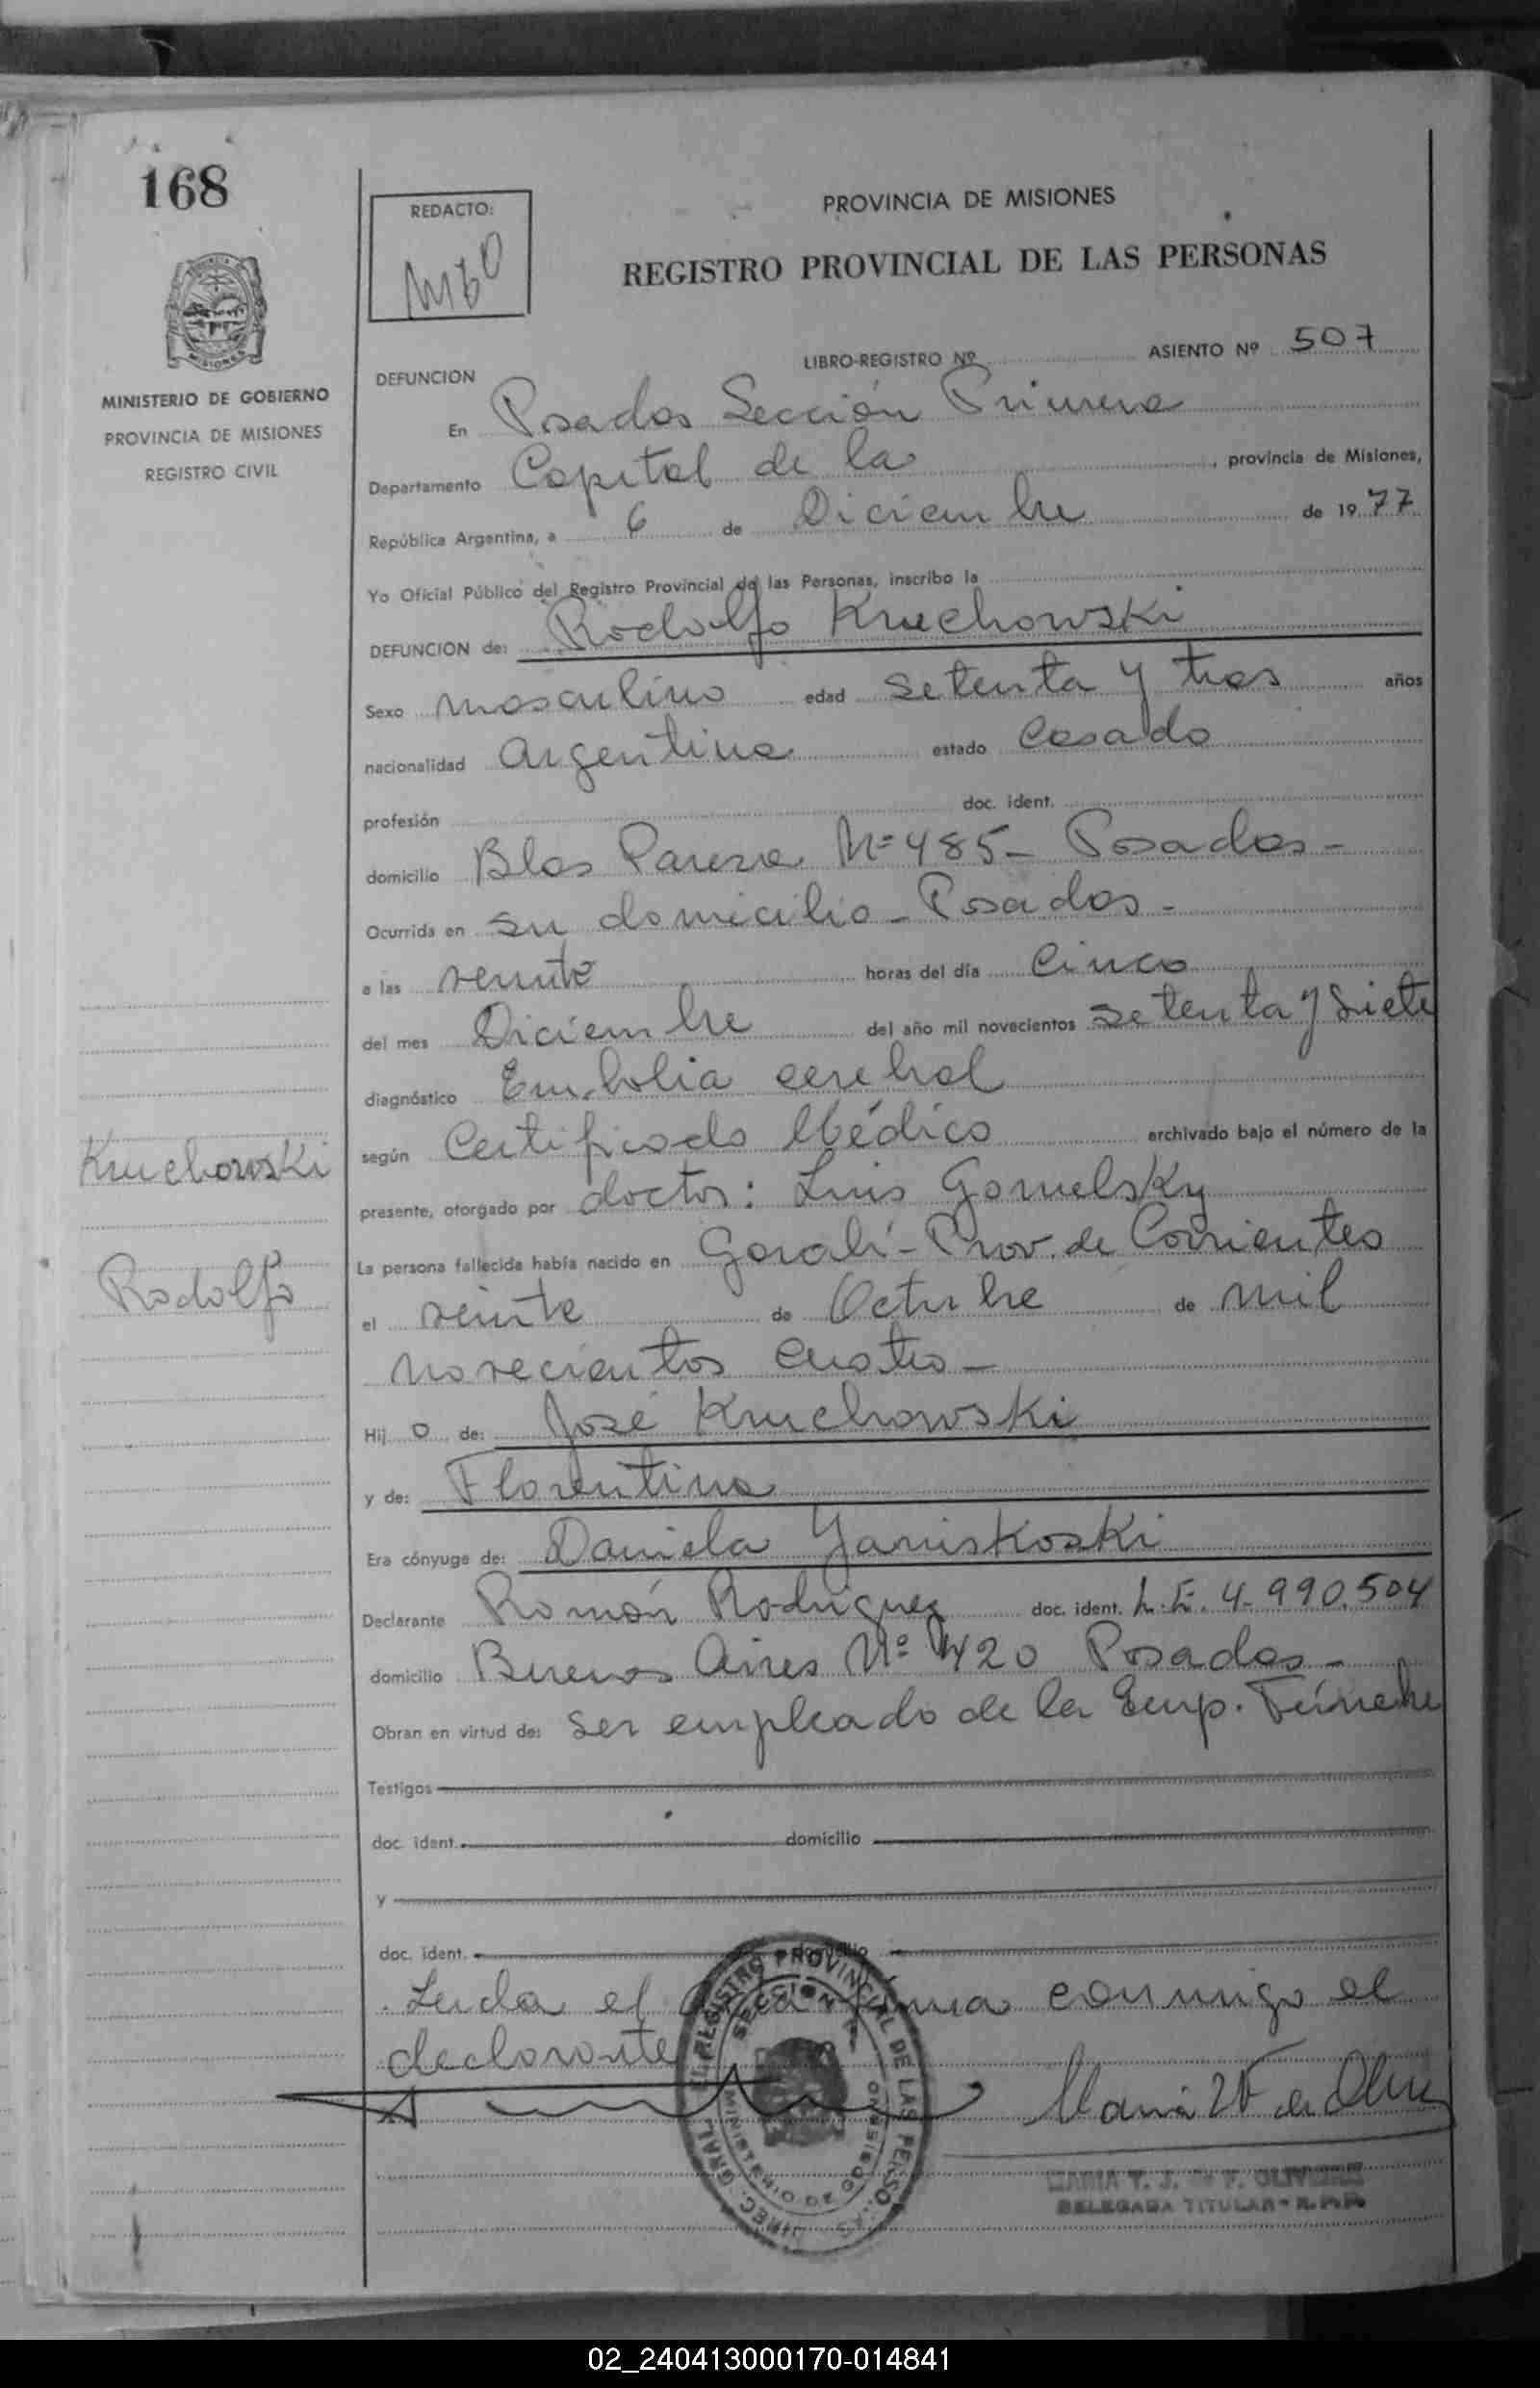 168
REDACTO:
PROVINCIA DE MISIONES
REGISTRO PROVINCIAL DE LAS PERSONAS
MISIONES
MINISTERIO DE GOBIERNO
PROVINCIA DE MISIONES
REGISTRO CIVIL
LIBRO-REGISTRO Nº ASIENTO Nº 507
DEFUNCION
En Posadas Sección Primera
Departamento Capital de la, provincia de Misiones,
República Argentina, a 6 de Diciembre de 1977
Yo Oficial Público del Registro Provincial de las Personas, inscribo la
DEFUNCION de: Rodolfo Kruchowski
Sexo masculino edad setenta y tres años
nacionalidad argentina estado Casado
profesión doc. ident.
domicilio Blas Parera Nº 485- Posadas-
Ocurrida en su domicilio - Posadas-
a las veinte horas del día Cinco
del mes Diciembre del año mil novecientos setenta y siete
diagnóstico Embolia cerebral
según Certificado Médico archivado bajo el número de la
presente, otorgado por doctor: Luis Gomelsky
La persona fallecida había nacido en Garabí - Prov. de Corrientes
el veinte de Octubre de mil
novecientos cuatro-
Hij o de: José Kruchowski
y de: Florentina
Era cónyuge de: Daniela Yaniskoski
Declarante Román Rodriguez doc. ident. L.E. 4.990.504
domicilio Buenos Aires Nº 420 Posadas-
Obran en virtud de: ser empleado de la Emp. Fúnebre
Testigos
doc. ident. domicilio
y
doc. ident. domicilio
Leida el acta firma conmigo el
declarante
Kruchowski
Rodolfo
DIREC. GRAL. REGISTRO PROVINCIAL DE LAS PERSONAS
SECCION 1ª
MINISTERIO DE GOBIERNO
DELEGADA TITULAR - R.P.P.
02_240413000170-014841